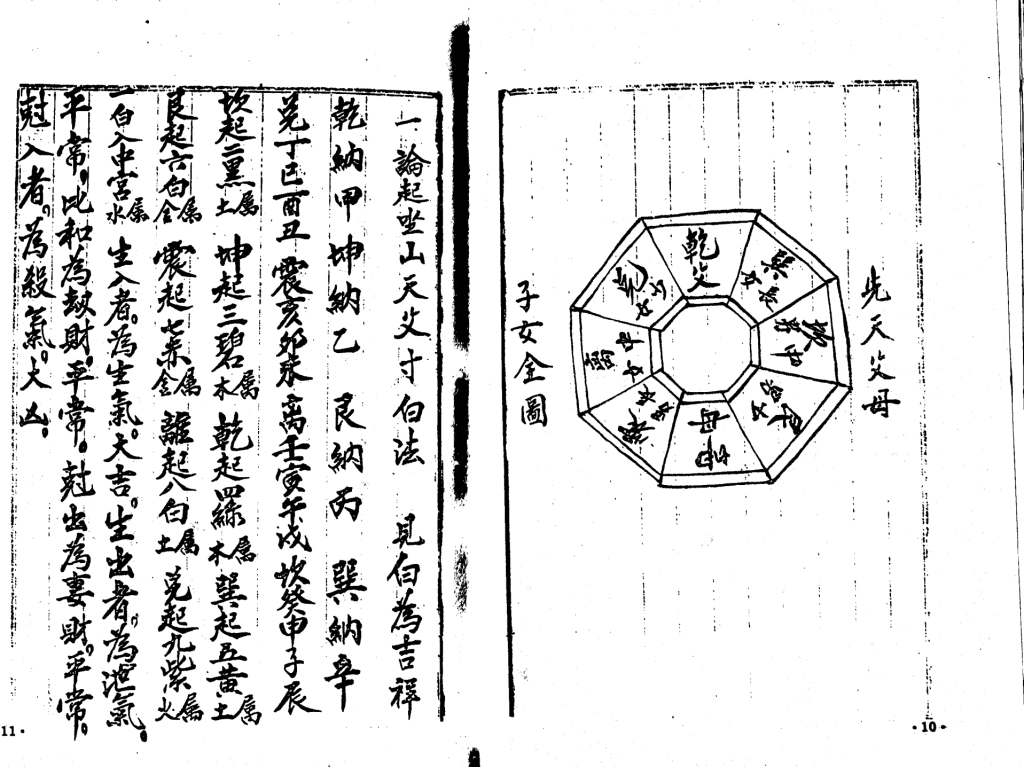 先天父母
乾父
巽長女
坎中男
艮少男
坤母
震長男
離中女
兌少女
子女全圖
·10·
一論起坐山天父寸白法　見白為吉祥
乾納甲　坤納乙　艮納丙　巽納辛
兌丁巳酉丑　震亥卯未　离壬寅午戌　坎癸申子辰
坎起二黑屬土　坤起三碧屬木　乾起四綠屬木　巽起五黄屬土
艮起六白屬金　震起七赤屬金　離起八白屬土　兌起九紫屬火
一白入中宮屬水　生入者。為生氣。大吉。生出者。為泄氣。
平常。比和為 財。平常。尅出為妻財。平常。
尅入者。為殺氣。大凶。
11·